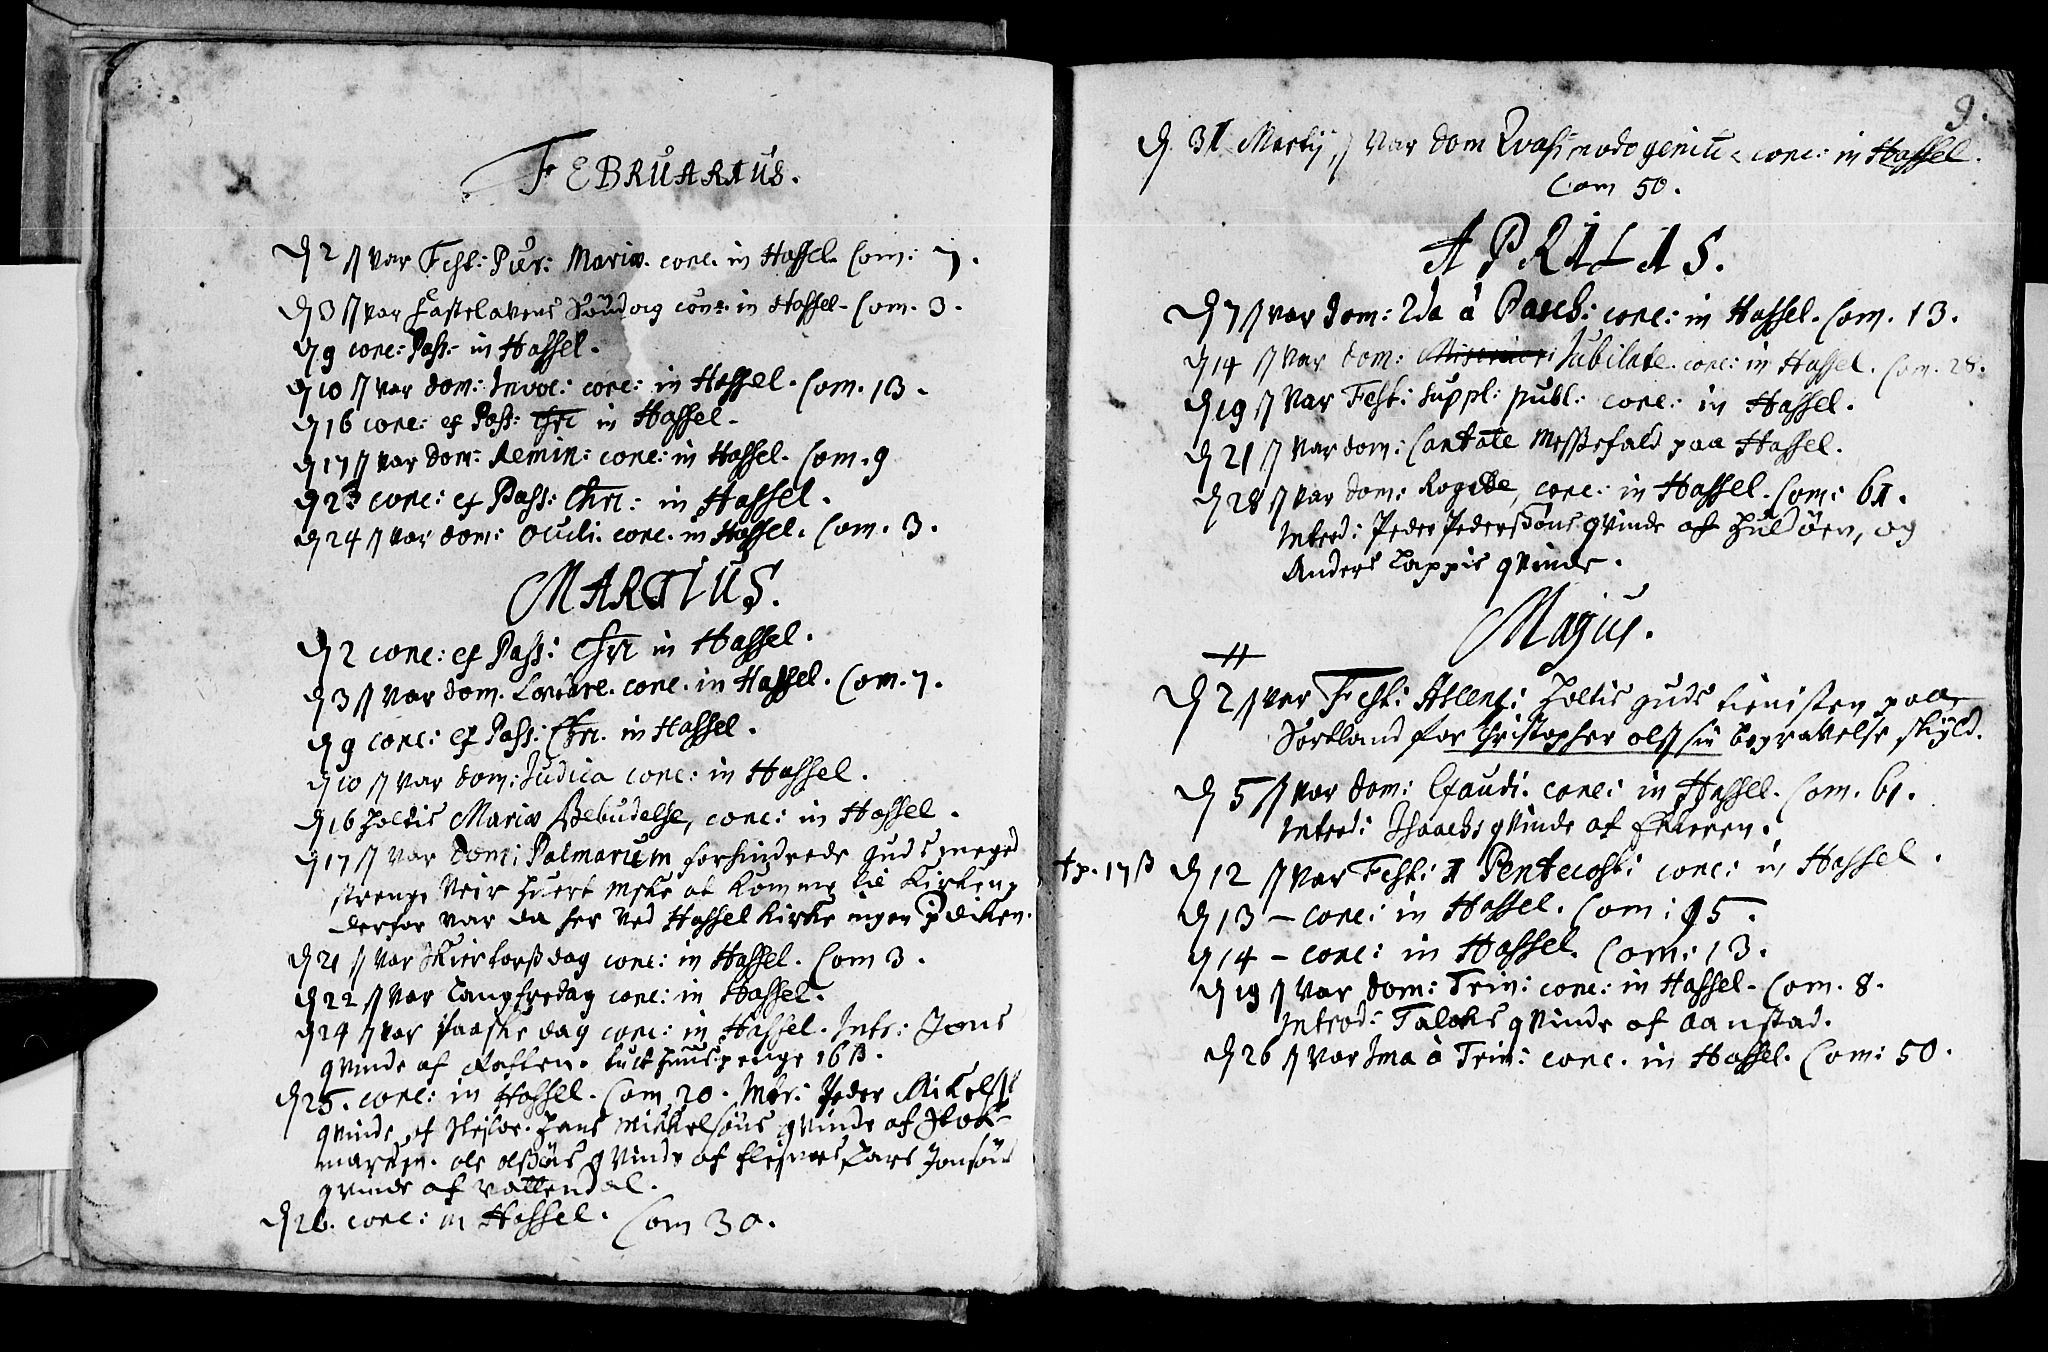 FEBRUARIUS.
D 2 // var Fest: Pur: Mariæ. conc. in Hassel. Com: 7.
D 3 // var Fastelavens Söndag conc: in Hassel. Com. 3.
D 9 conc: Pass: in Hassel.
D 10 // var dom: Invoc: conc: in Hassel. Com. 13.
D 16 conc: ex Pass: Chri in Hassel.
D 17 // var dom: Remin: conc: in Hassel. Com. 9
D 23 conc: ex Pass: Chri: in Hassel.
D 24 // var dom: Oculi. conc. in Hassel. Com. 3.
MARTIUS.
D 2 conc: ex Pass: Chri in Hassel.
D 3 // var dom. Lætare. conc. in Hassel. Com. 7.
D 9 conc: ex Pass: Chri. in Hassel.
D 10 // var dom: Judica conc: in Hassel.
D 16 holtis Mariæ Bebudelse, conc: in Hassel.
D 17 // var dom: Palmarum forhindrede Guds meget
strenge Veir huert Mske at komme til Kirken,
derfor var da her ved Hassel Kirke ingen Prdiken.
D 21 // var Skiertorsdag conc: in Hassel. Com 3.
D 22 // var Langfredag conc: in Hassel.
D 24 // var Paaske dag conc: in Hassel. Intr: Jons
qvinde af Raften. tuct huus penge 16 ß.
D 25. conc: in Hassel. Com 20. Intr: Peder Mikels:
qvinde af Hans Mickelsøns qvinde af Stok-
marken. Ole Olsøns qvinde af Flesnes Lars Jonsøns
qvinde af Vattendal.
D 26. conc: in Hassel. Com 30.
9.
D. 31 Martij, // var dom Qvasimodogenitu conc: in Hassel.
Com 50.
APRILIS.
D 7 // var dom: 2da à Pasch: conc: in Hassel. Com. 13.
D 14 // var dom: Misericor: Jubilate. conc: in Hassel. Com. 28.
D 19 // var Fest: suppl: publ: conc: in Hassel.
D 21 // var dom: Cantate Messefald paa Hassel.
D 28 // var dom: Rogate, conc: in Hassel. Com: 61.
Introd: Peder Pedersøns qvinde af Huløen, og
Anders Lappis qvinde.
Majus.
D 2 // var Fest: Ascens: holtis guds tienisten paa
Sortland for Christopher Ols: sin begravelse skyld.
D 5 // var dom: Exaudi. conc: in Hassel. Com. 61.
Introd: Isaachs qvinde af
tp. 17 ß D 12 // var Fest: 1 Pentecost: conc: in Hassel.
D 13 – conc: in Hassel. Com: 95.
D 14 – conc: in Hassel. Com: 13.
D 19 // var dom: Trin: conc: in Hassel. Com. 8.
Introd: Falchs qvinde af Aanstad.
D 26 // var 1ma à Trin: conc. in Hassel. Com: 50.